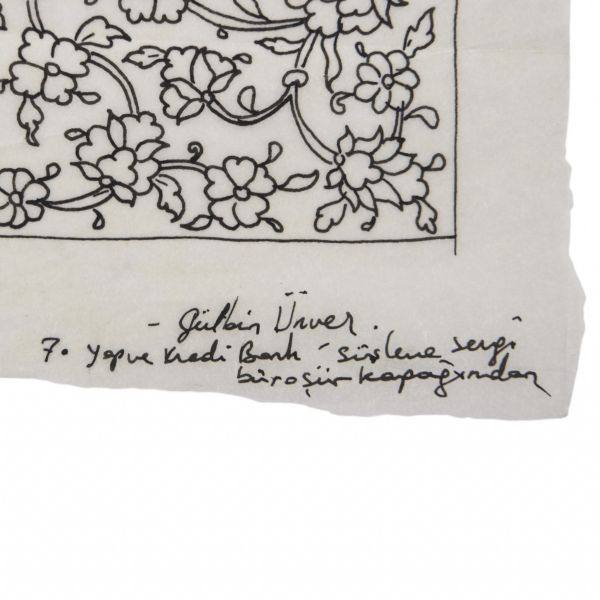 - Gülbin Ünver.
7. Yapı ve Kredi Bank süsleme sergi
büroşür kapağından